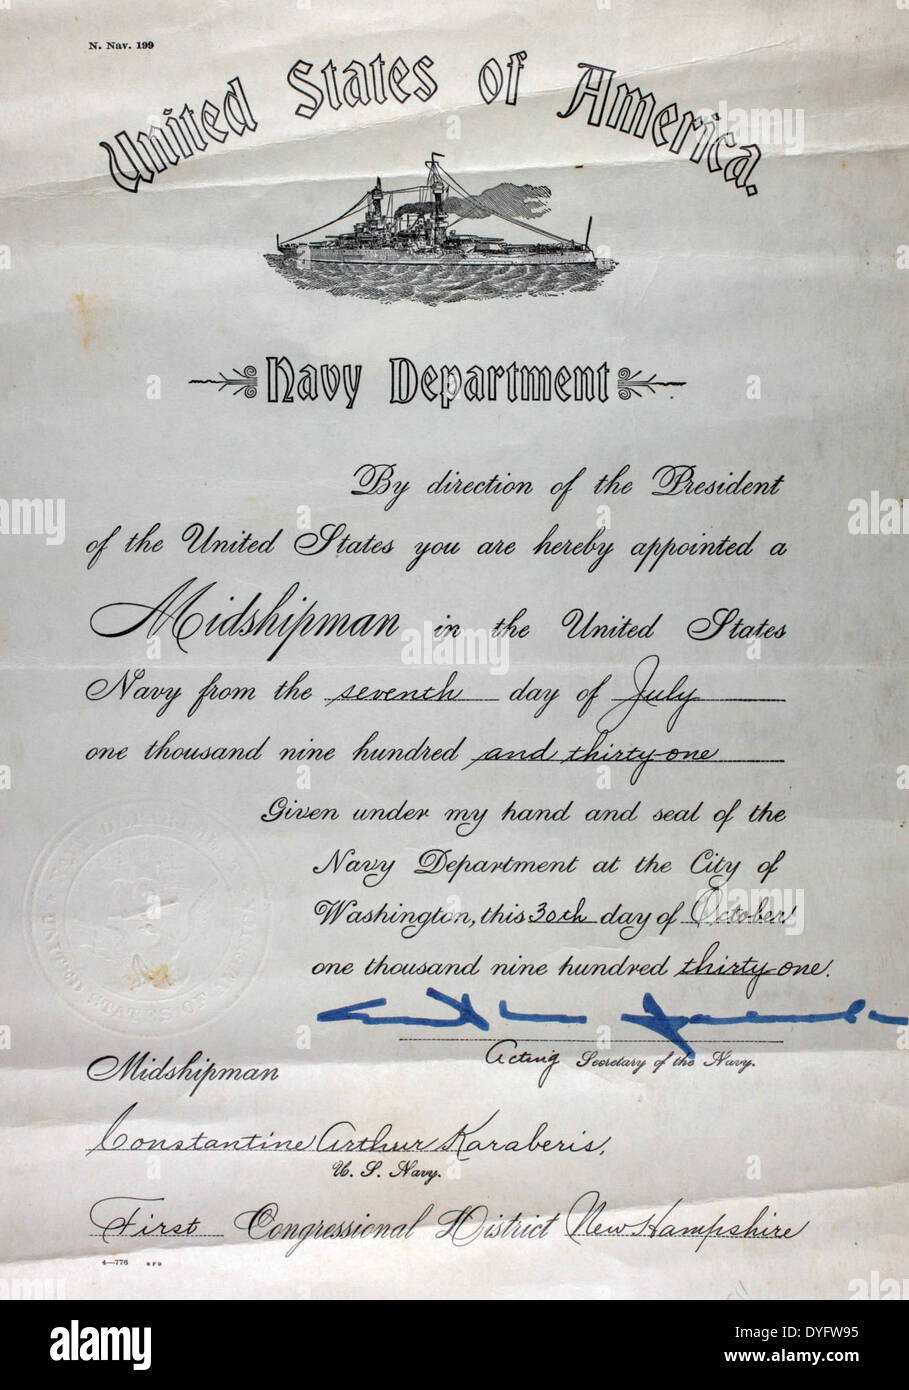 N. Nav. 199
United States of America.
Navy Department
By direction of the President
of the United States you are hereby appointed a
Midshipman in the United States
Navy from the seventh day of July
one thousand nine hundred and thirty-one
Given under my hand and seal of the
Navy Department at the City of
Washington, this 30th day of October
one thousand nine hundred thirty-one.
NAVY DEPARTMENT
UNITED STATES OF AMERICA
Acting Secretary of the Navy.
Midshipman
Constantine Arthur Karaberis,
U. S. Navy.
First Congressional District New Hampshire
4—776 GPO
alamy
Image ID: DYFW95
www.alamy.com